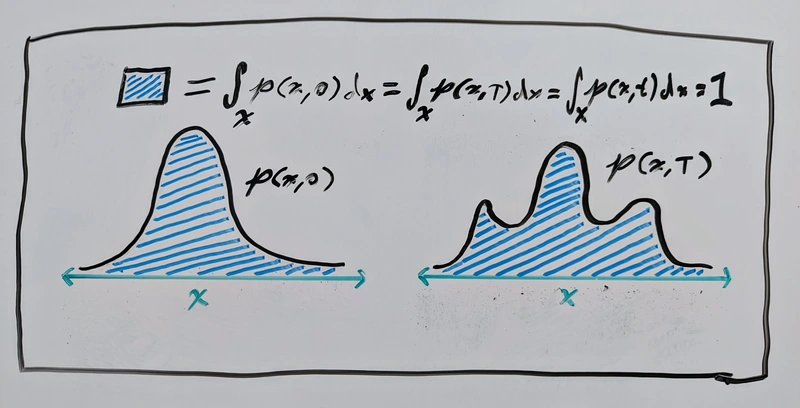 = ∫ₓ p(x,0) dx = ∫ₓ p(x,T) dx = ∫ₓ p(x,t) dx = 1
p(x,0)
p(x,T)
x
x